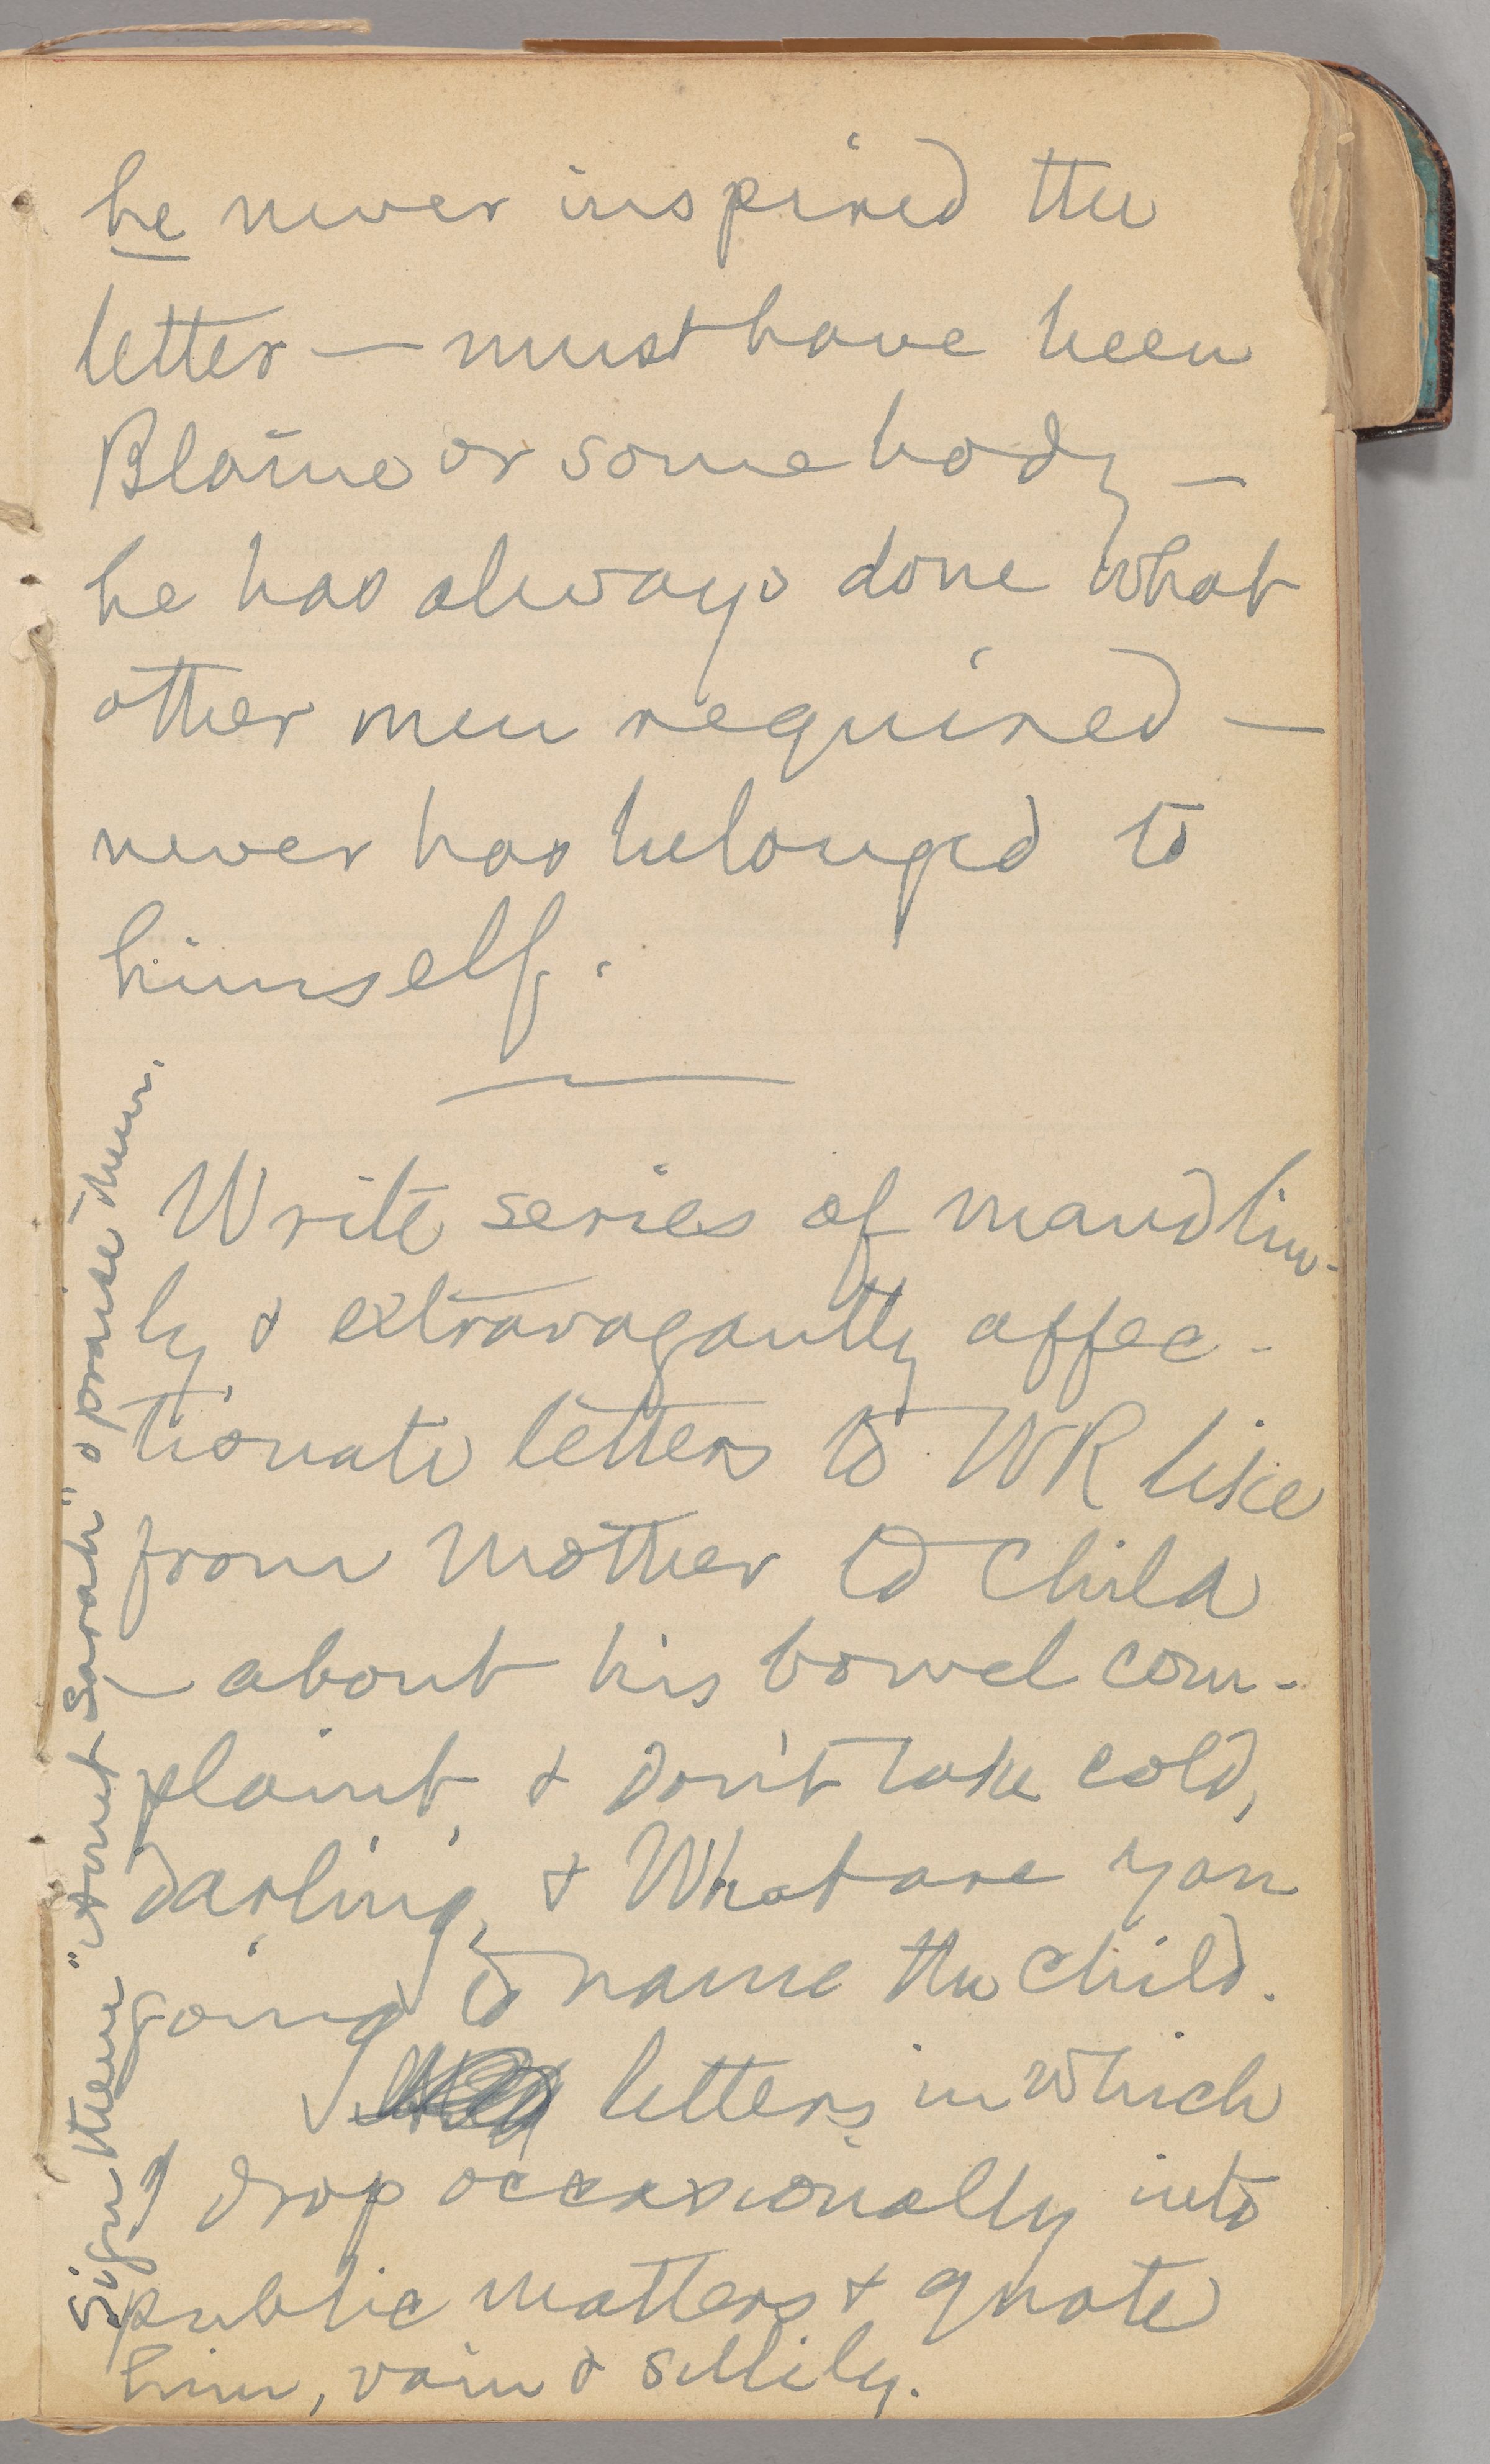 he never inspired the
letter — must have been
Blaine or somebody —
he has always done what
other men required —
never has belonged to
himself.
Write series of maudlin-
ly & extravagantly affec-
tionate letters to WR like
from mother to child
— about his bowel com-
plaint, & don't take cold,
darling, & What are you
going to name the child.
letters in which
I drop occasionally into
public matters & quote
him, vain & sillily.
Sign them "Aunt Sarah" & praise them.